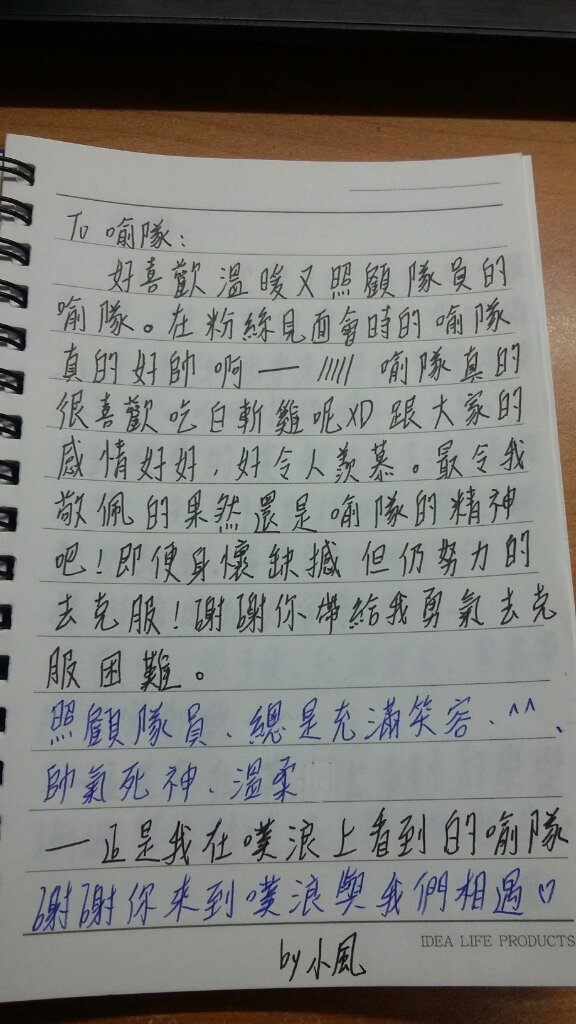 To 喻隊：
好喜歡溫暖又照顧隊員的
喻隊。在粉絲見面會時的喻隊
真的好帥啊— ///// 喻隊真的
很喜歡吃白斬雞呢XD 跟大家的
感情好好，好令人羨慕。最令我
敬佩的果然還是喻隊的精神
吧！即便身懷缺撼但仍努力的
去克服！謝謝你帶給我勇氣去克
服困難。
照顧隊員、總是充滿笑容、^^、
帥氣死神、溫柔
—正是我在噗浪上看到的喻隊
謝謝你來到噗浪與我們相遇♡
IDEA LIFE PRODUCTS
by 小風